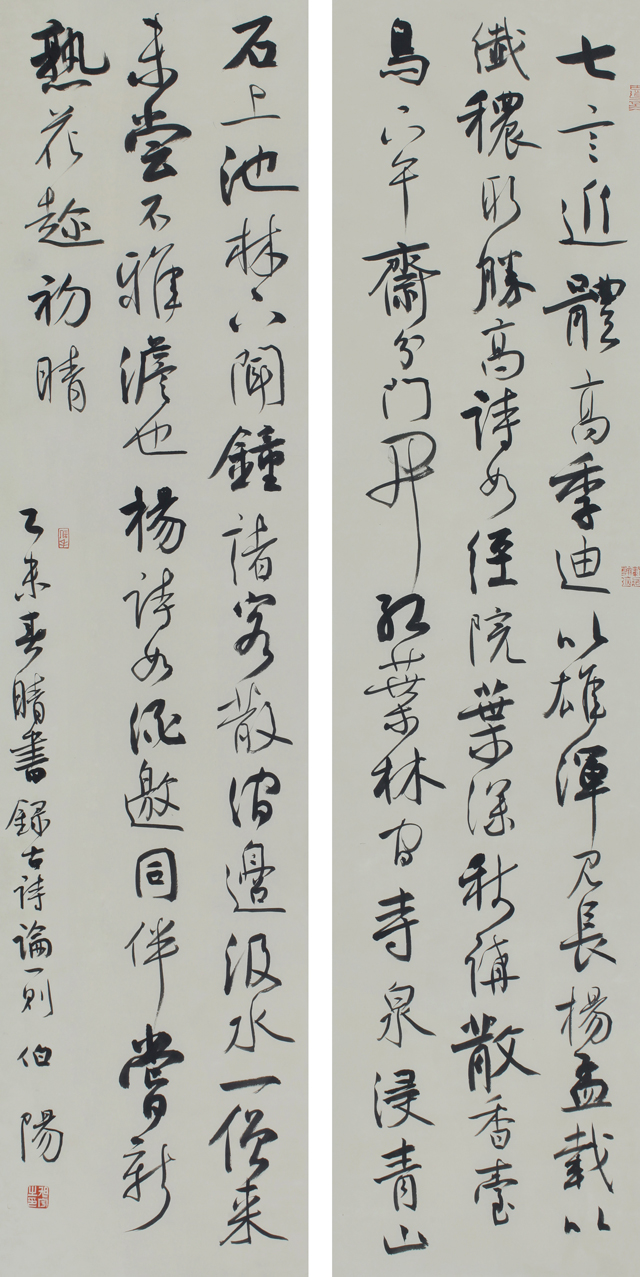 七言近體高季迪以雄渾見長楊孟載以
纖穠取勝高詩如經院葉深秋講散香臺
鳥下午齋分門開紅葉林間寺泉浸青山
石上池林下聞鐘諸客散澗邊汲水一僧來
未嘗不雅澹也楊詩如酒邀同伴嘗新
熟花趁初晴
乙未春晴書錄古詩論一則 伯陽